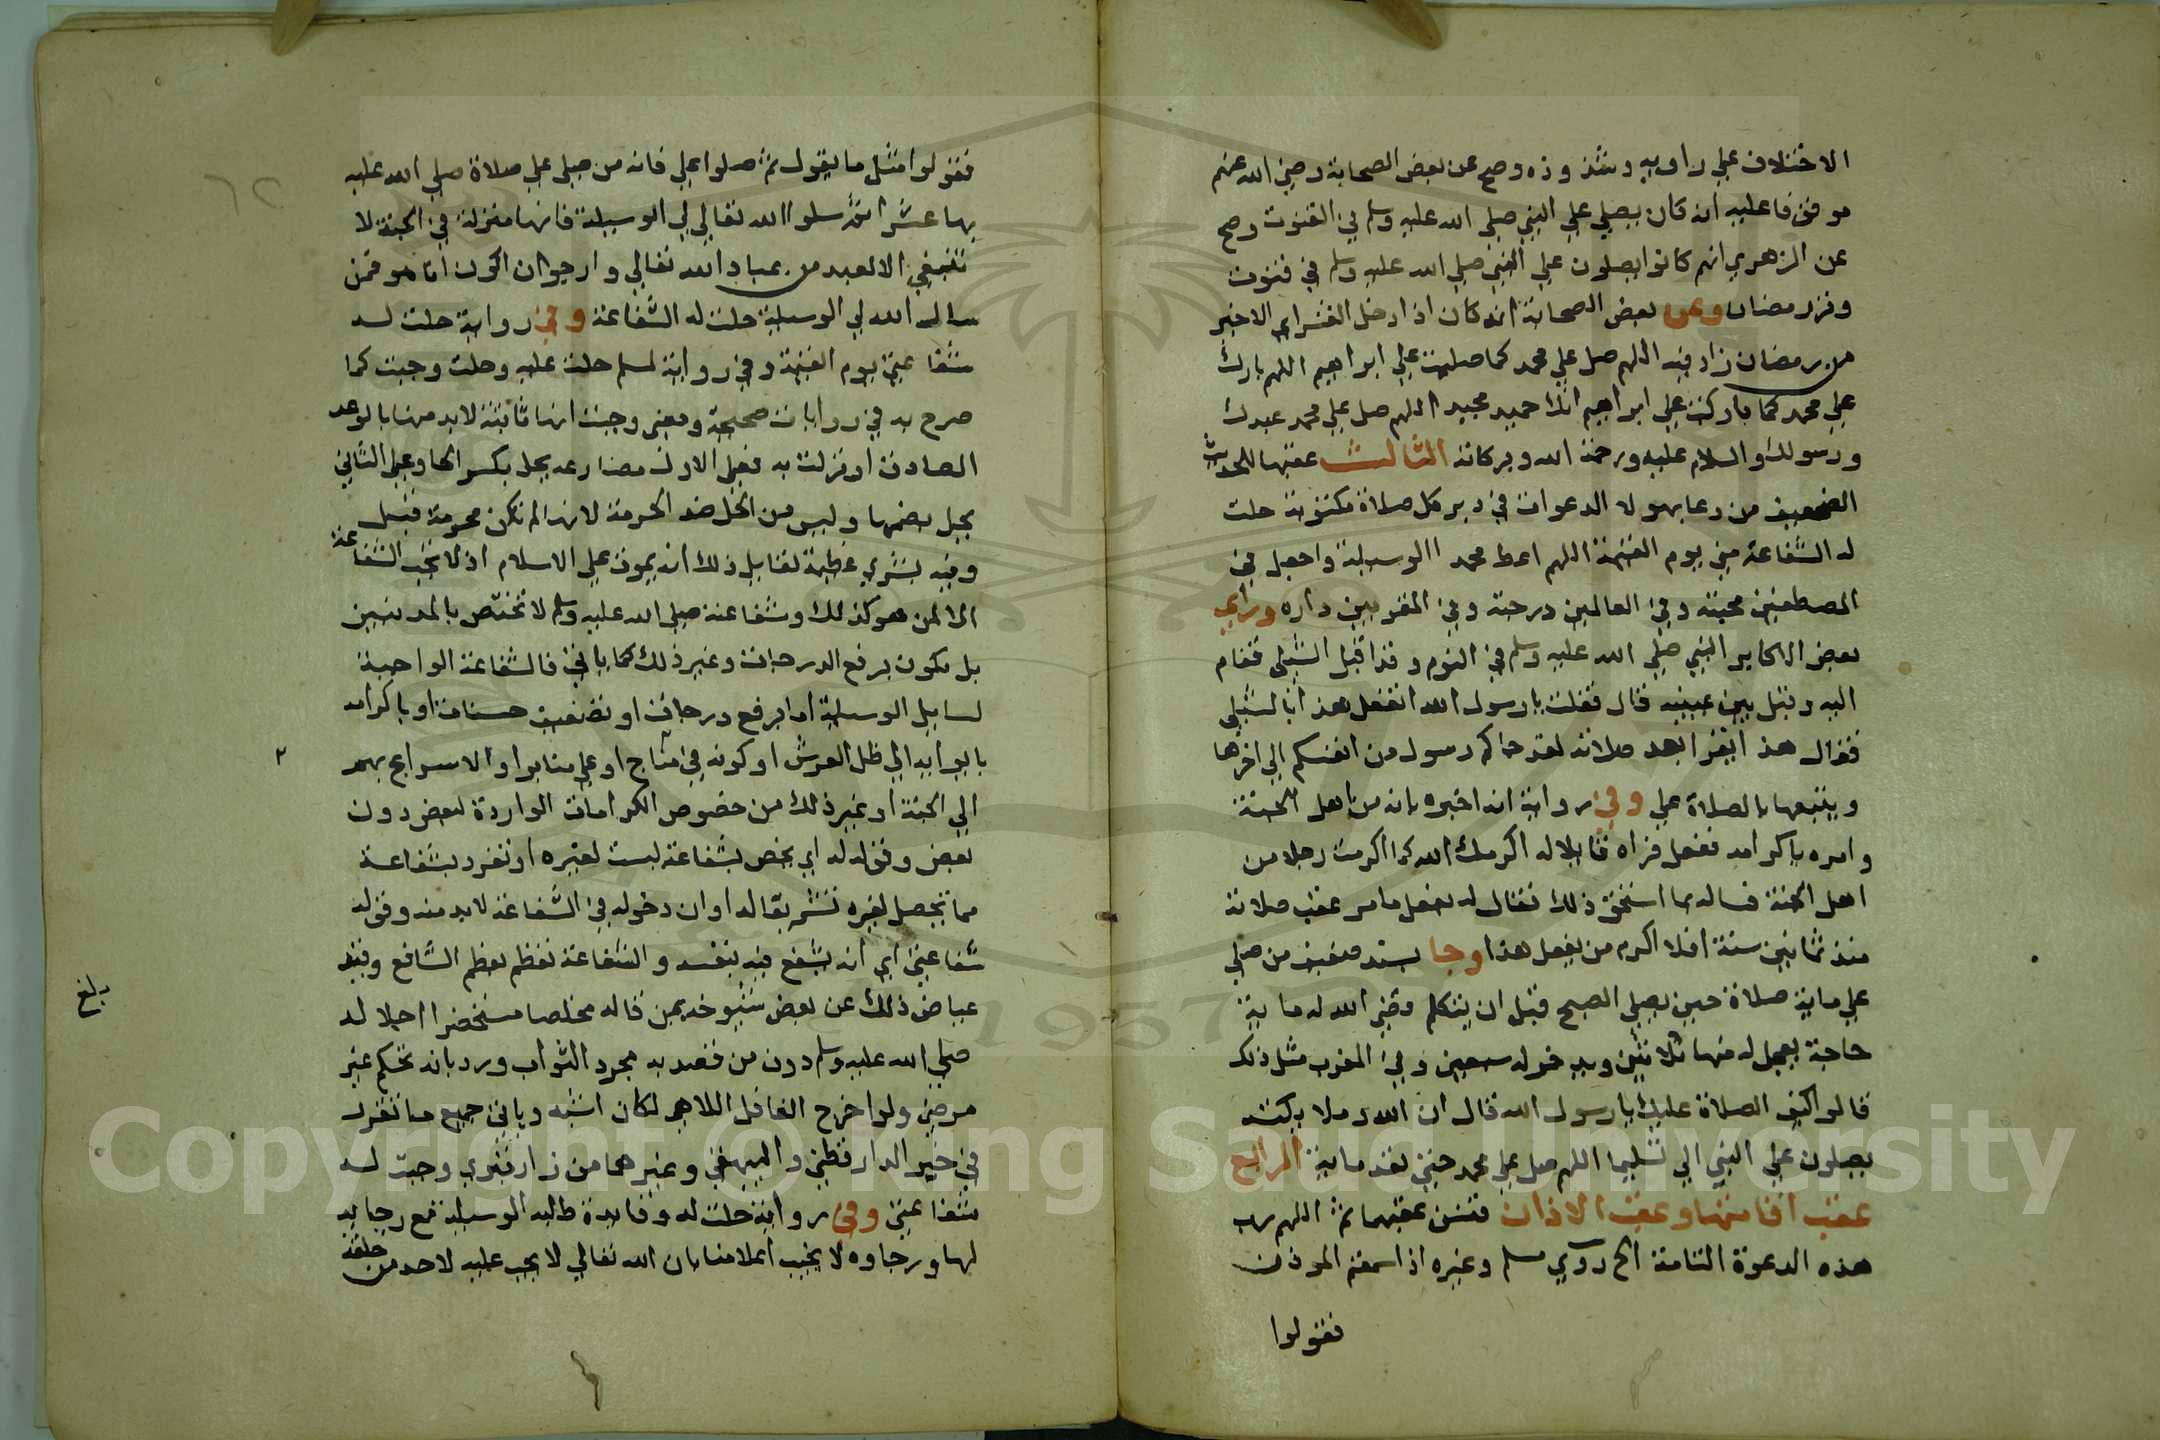 الاختلاف علي راويه وشذوذه وصح عن بعض الصحابة رضي الله عنهم
موقوفا عليه انه كان يصلي علي النبي صلي الله عليه وسلم في القنوت وصح
عن الزهري انهم كانوا يصلون علي النبي صلي الله عليه وسلم في قنوت
وتر رمضان وعن بعض الصحابة انه كان اذا دخل العشر الاخير
من رمضان زاد فيه اللهم صل علي محمد كما صليت علي ابراهيم اللهم بارك
علي محمد كما باركت علي ابراهيم انك حميد مجيد اللهم صل علي محمد عبدك
ورسولك والسلام عليه ورحمة الله وبركاته الثالث عقبها للحديث
الضعيف من دعا بهولا الدعوات في دبر كل صلاة مكتوبة حلت
له الشفاعة مني يوم القيمة اللهم اعط محمد الوسيلة واجعل في
المصطفين محبته وفي العالمين درجته وفي المقربين داره وراي
بعض الاكابر النبي صلي الله عليه وسلم في النوم وقد اقبل الشبلي فقام
اليه وقبل بين عينيه قال فقلت يا رسول الله اتفعل هذا بالشبلي
فقال هذا يقرا بعد صلاته لقد جاكم رسول من انفسكم الي اخرها
ويتبعها بالصلاة علي وفي رواية انه اخبره بانه من اهل الجنة
وامره باكرامه ففعل فراه قايلا له اكرمك الله كما اكرمت رجلا من
اهل الجنة فساله بما استحق ذلك فقال له بفعل ما مر عقب صلاته
منذ ثمانين سنة افلا اكرم من يفعل هذا وجا بسند ضعيف من صلي
علي ماية صلاة حين يصلي الصبح قبل ان يتكلم قضي الله له ماية
حاجة يعجل له منها ثلاثين ويدخر له سبعين وفي المغرب مثل ذلك
قالوا كيف الصلاة عليك يا رسول الله قال ان الله وملايكته
يصلون علي النبي الي تسليما اللهم صل علي محمد حتي تعد ماية الرابع
عقب اقامتها وعقب الاذان فتسن عقبهما ثم اللهم رب
هذه الدعوة التامة الخ روي مسلم وغيره اذا سمعتم الموذن
فقولوا
فقولوا مثل ما يقول ثم صلوا علي فانه من صلي علي صلاة صلي الله عليه
بها عشرا ثم سلوا الله تعالي لي الوسيلة فانها منزلة في الجنة لا
تنبغي الا لعبد من عباد الله تعالي وارجوا ان اكون انا هو فمن
سال الله لي الوسيلة حلت له الشفاعة وفي رواية حلت له
شفاعتي يوم القيمة وفي رواية لمسلم حلت عليه وحلت وجبت كما
صرح به في روايات صحيحة ومعني وجبت انها ثابتة لا بد منها بالوعد
الصادق او نزلت به فعلي الاول مضارعه يحل بكسر الحا وعلي الثاني
يحل بضمها وليس من الحل ضد الحرمة لانها لم تكن محرمة قبل
وفيه بشري عظيمة لقايل ذلك انه يموت علي الاسلام اذ لا تجب الشفاعة
الا لمن هو كذلك وشفاعته صلي الله عليه وسلم لا تختص بالمذنبين
بل تكون برفع الدرجات وغير ذلك كما ياتي فالشفاعة الواجبة
لسايل الوسيلة اما برفع درجات او تضعيف حسنات او باكرامه
بايوايه الي ظل العرش او كونه في تاج او علي منابر او الاسراع بهم
٢
الي الجنة او غير ذلك من خصوص الكرامات الواردة لبعض دون
بعض وقوله له اي يخص بشفاعة ليست لغيره او تفرد بشفاعة
مما تحصل لغيره تشريفا له او ان دخوله في الشفاعة لا بد منه وقوله
شفاعتي اي انه يشفع فيه بنفسه والشفاعة تعظم بعظم الشافع وقيد
عياض ذلك عن بعض شيوخه بمن قاله مخلصا مستحضرا اجلا له
بلغ
صلي الله عليه وسلم دون من قصد به مجرد الثواب ورد بانه تحكم غير
مرضي ولو اخرج الغافل اللاهي لكان اشبه وياتي جميع ما تقرر
في خبر الدارقطني والبيهقي وغيرهما من زار قبري وجبت له
شفاعتي وفي رواية حلت له وفايدة طلبه الوسيلة مع رجايه
لها ورجاوه لا يخيب اعلامنا بان الله تعالي لا يجب عليه لاحد من خلقه